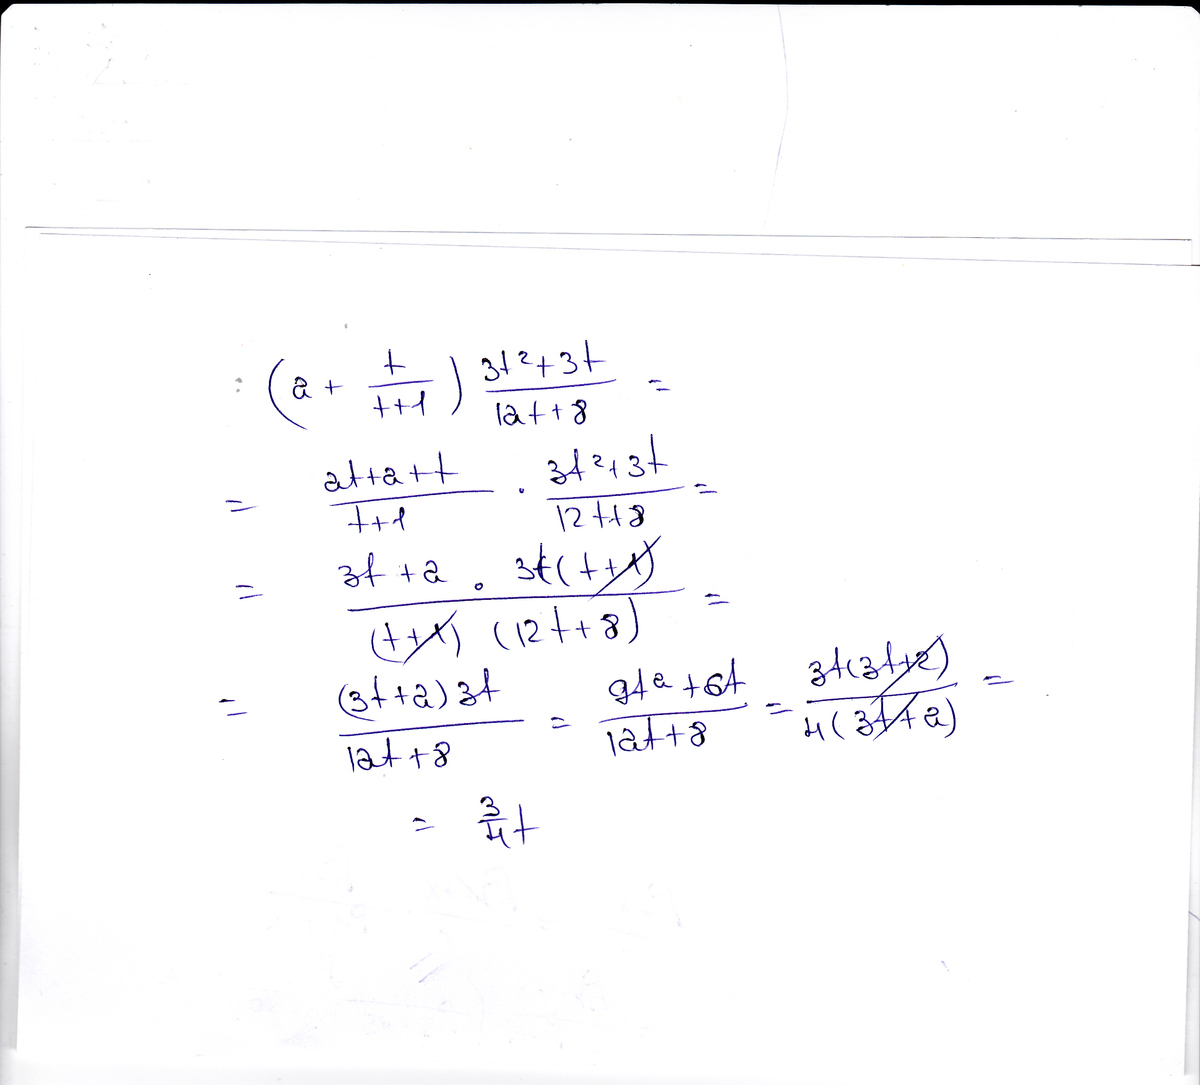 : (2 + t/(t+1)) (3t²+3t)/(12t+8) =
= (2t+2+t)/(t+1) · (3t²+3t)/(12t+8) =
= (3t+2 · 3t(t+1))/((t+1) (12t+8)) =
= ((3t+2)3t)/(12t+8) = (9t²+6t)/(12t+8) = (3t(3t+2))/(4(3t+2)) =
= 3/4 t